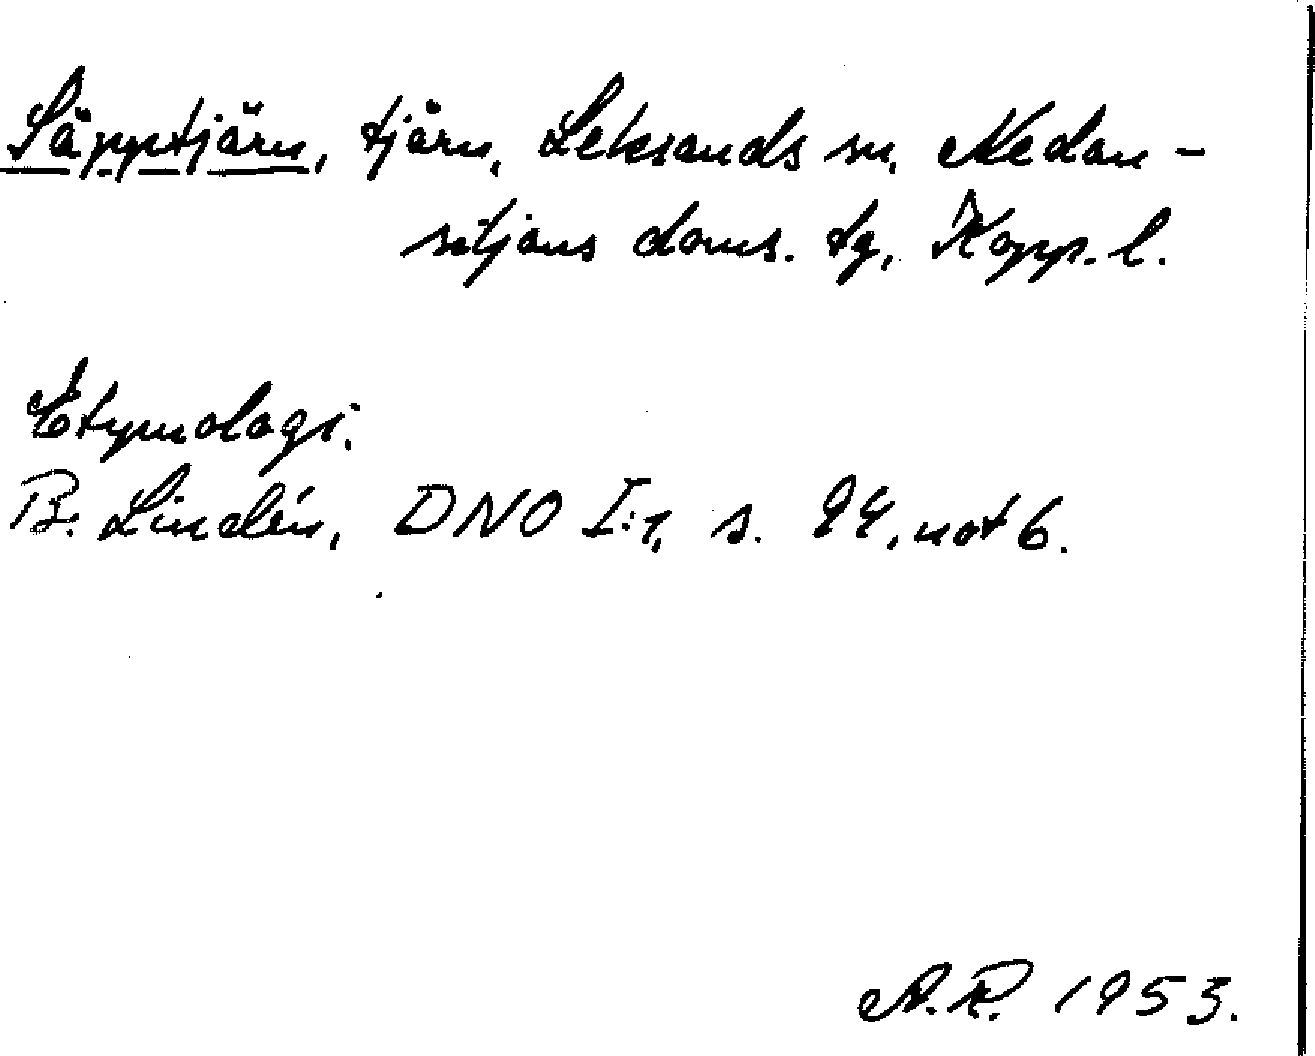 Säpptjärn, tjärn, Leksands sn, Nedan-
siljans doms. tg, Kopp. l.
Etymologi:
B. Lindén, DNO I:1, s. 94, not 6.
A.R. 1953.